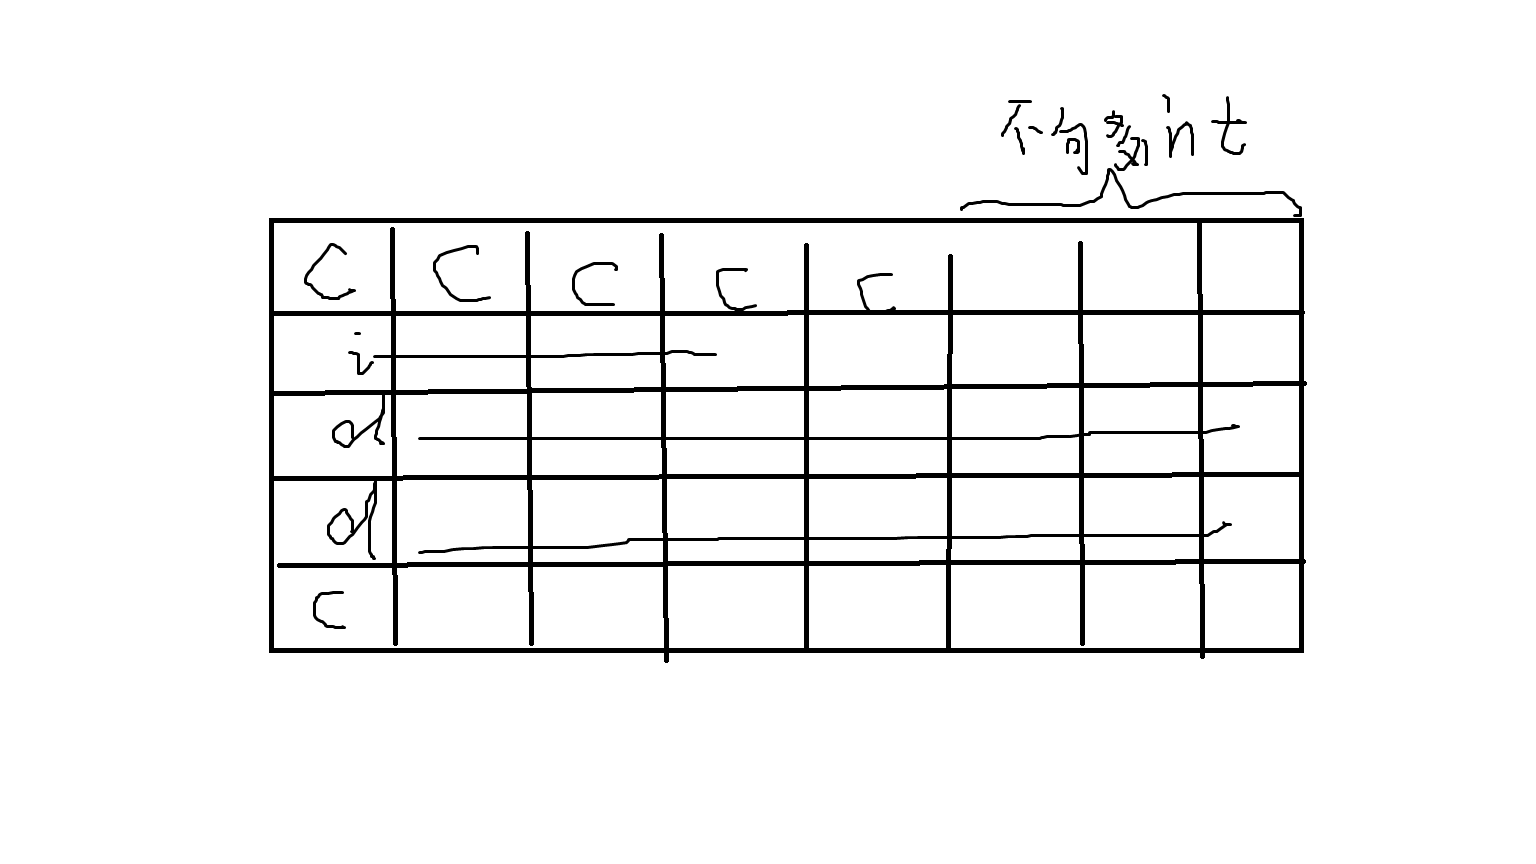 不向数int
C C C C C
i
d
d
C